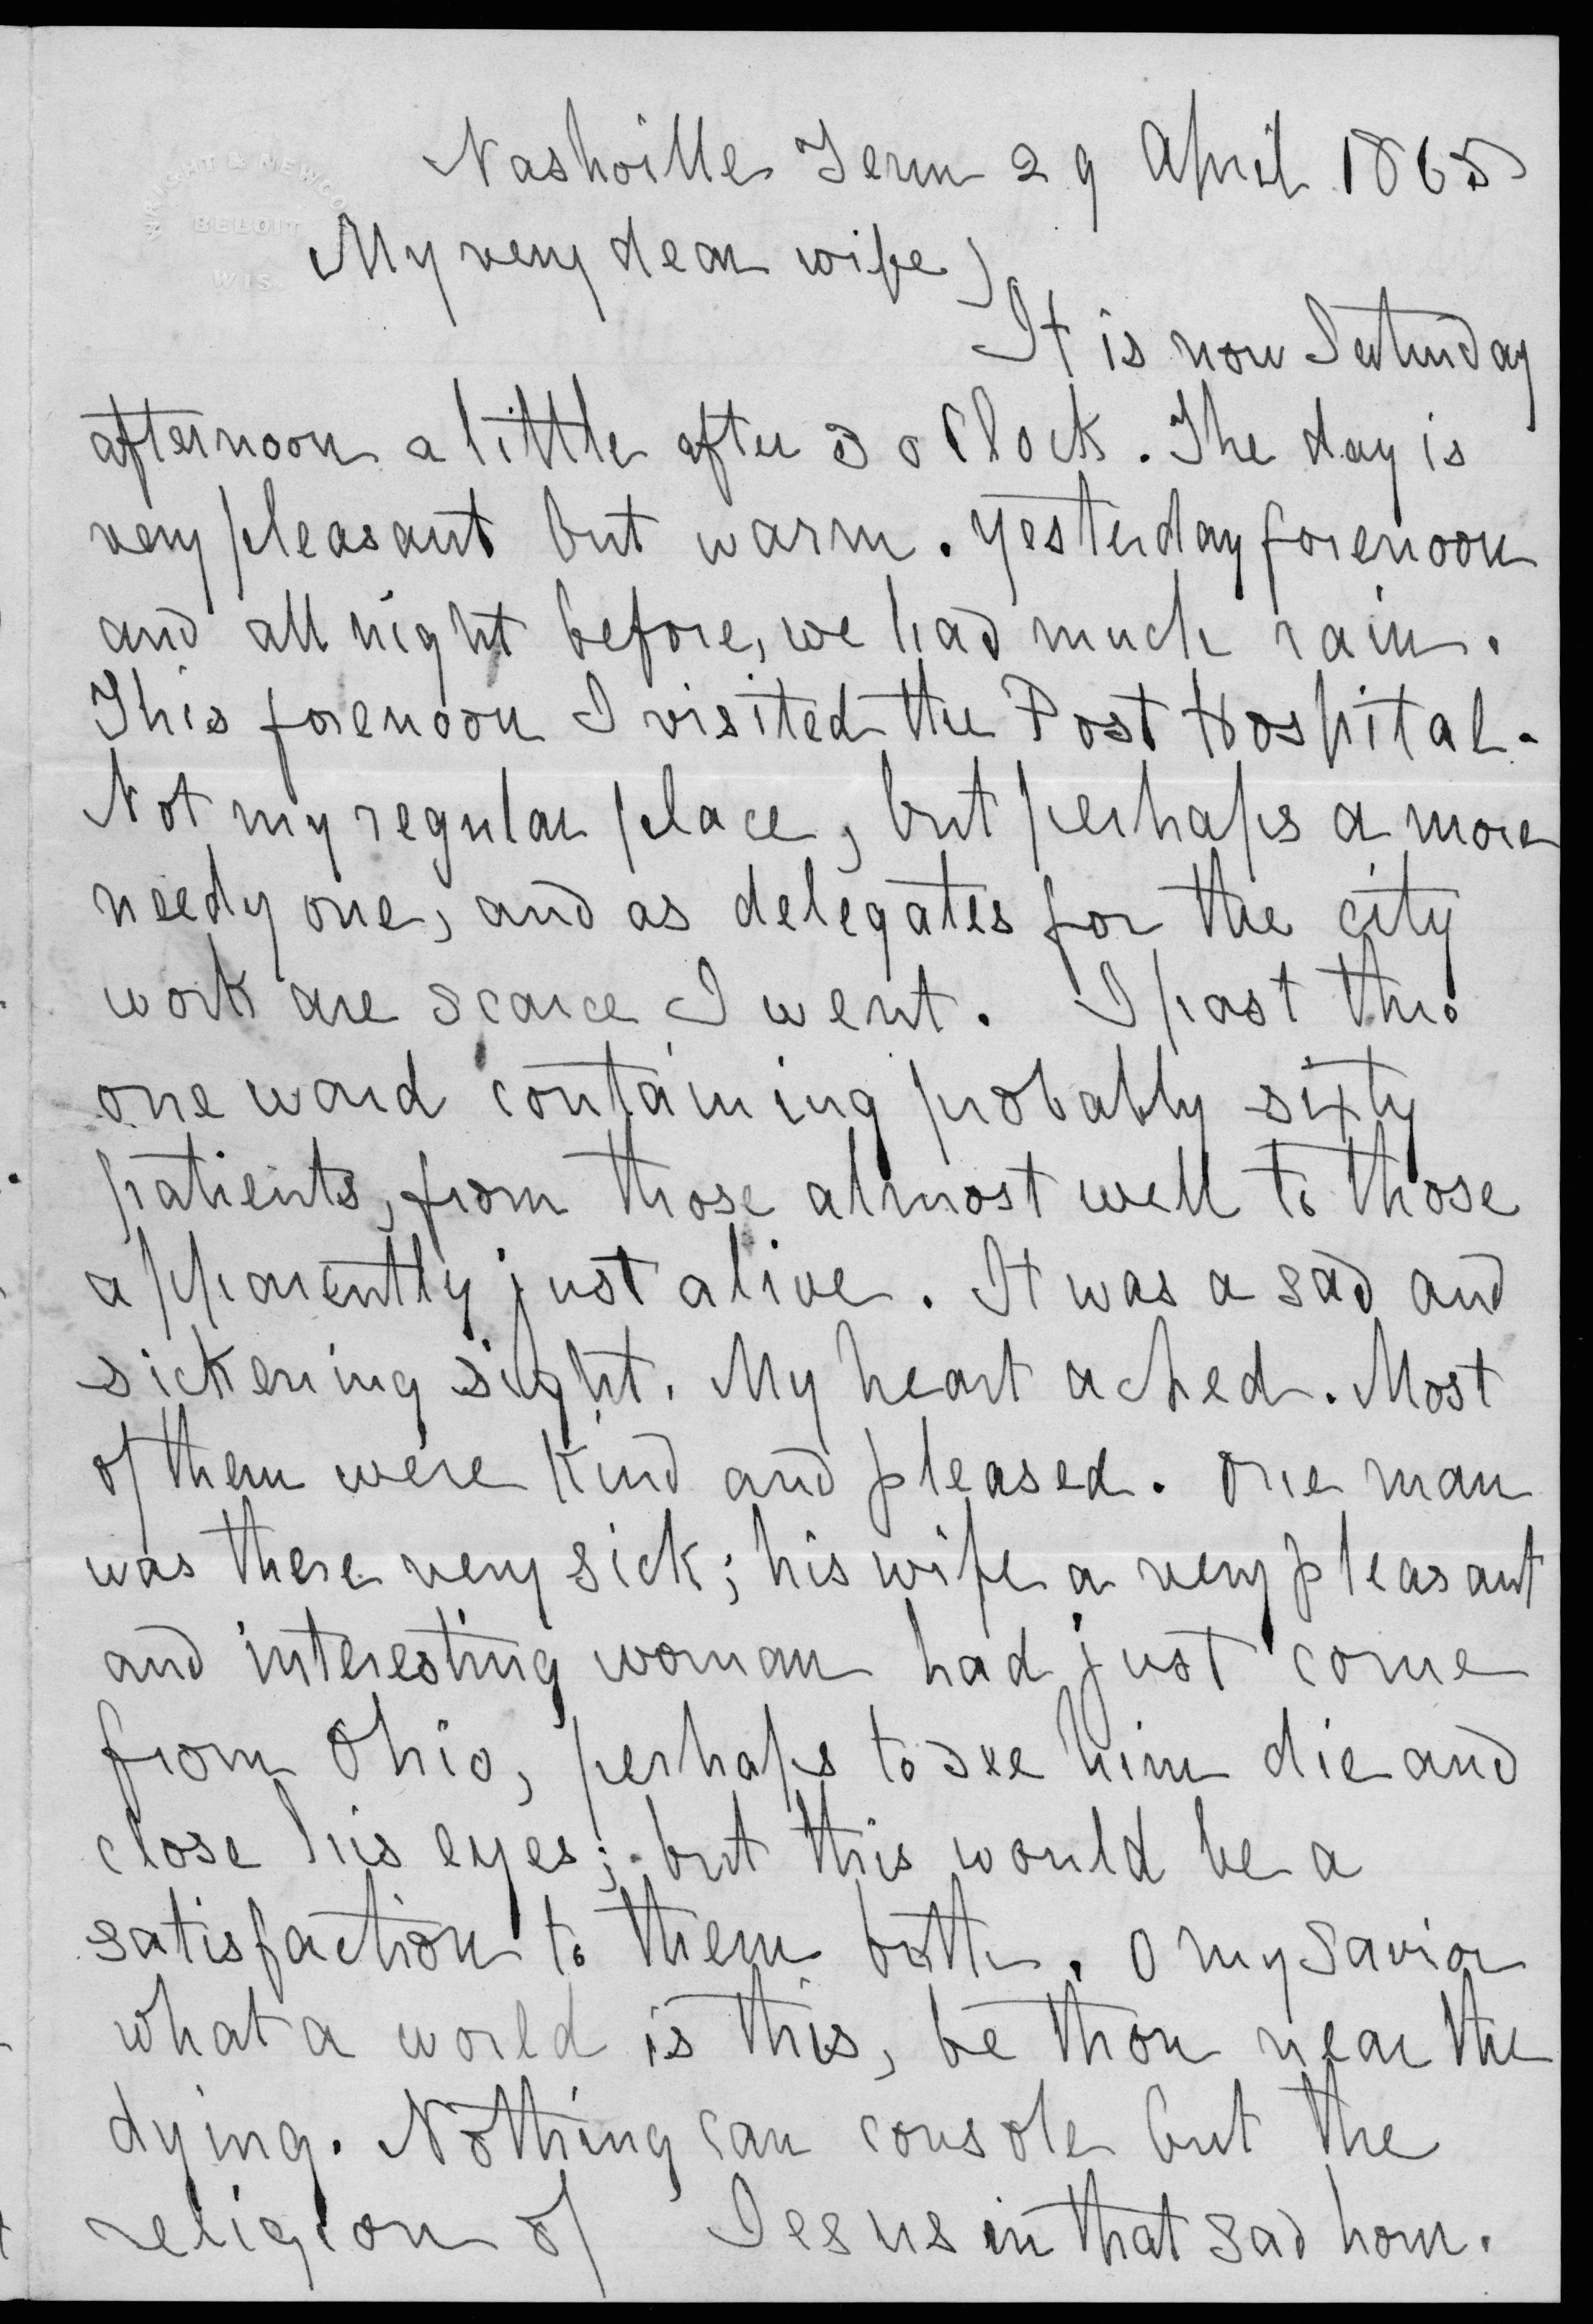 WRIGHT & NEWCO
BELOIT
WIS.
Nashville Tenn 29 April 1865
My very dear wife,
It is now Saturday
afternoon a little after 3 o Clock. The day is
very pleasant but warm. Yesterday forenoon
and all night before, we had much rain.
This forenoon I visited the Post Hospital.
Not my regular place, but perhaps a more
needy one, and as delegates for the city
work are scarce I went. I past thro
one ward containing probably sixty
patients, from those almost well to those
apparently just alive. It was a sad and
sickening sight. My heart ached. Most
of them were kind and pleased. One man
was there very sick; his wife a very pleasant
and interesting woman had just come
from Ohio, perhaps to see him die and
close his eyes; but this would be a
satisfaction to them both. O my Savior
what a world is this, be thou near the
dying. Nothing can console but the
religion of Jesus in that sad hour.